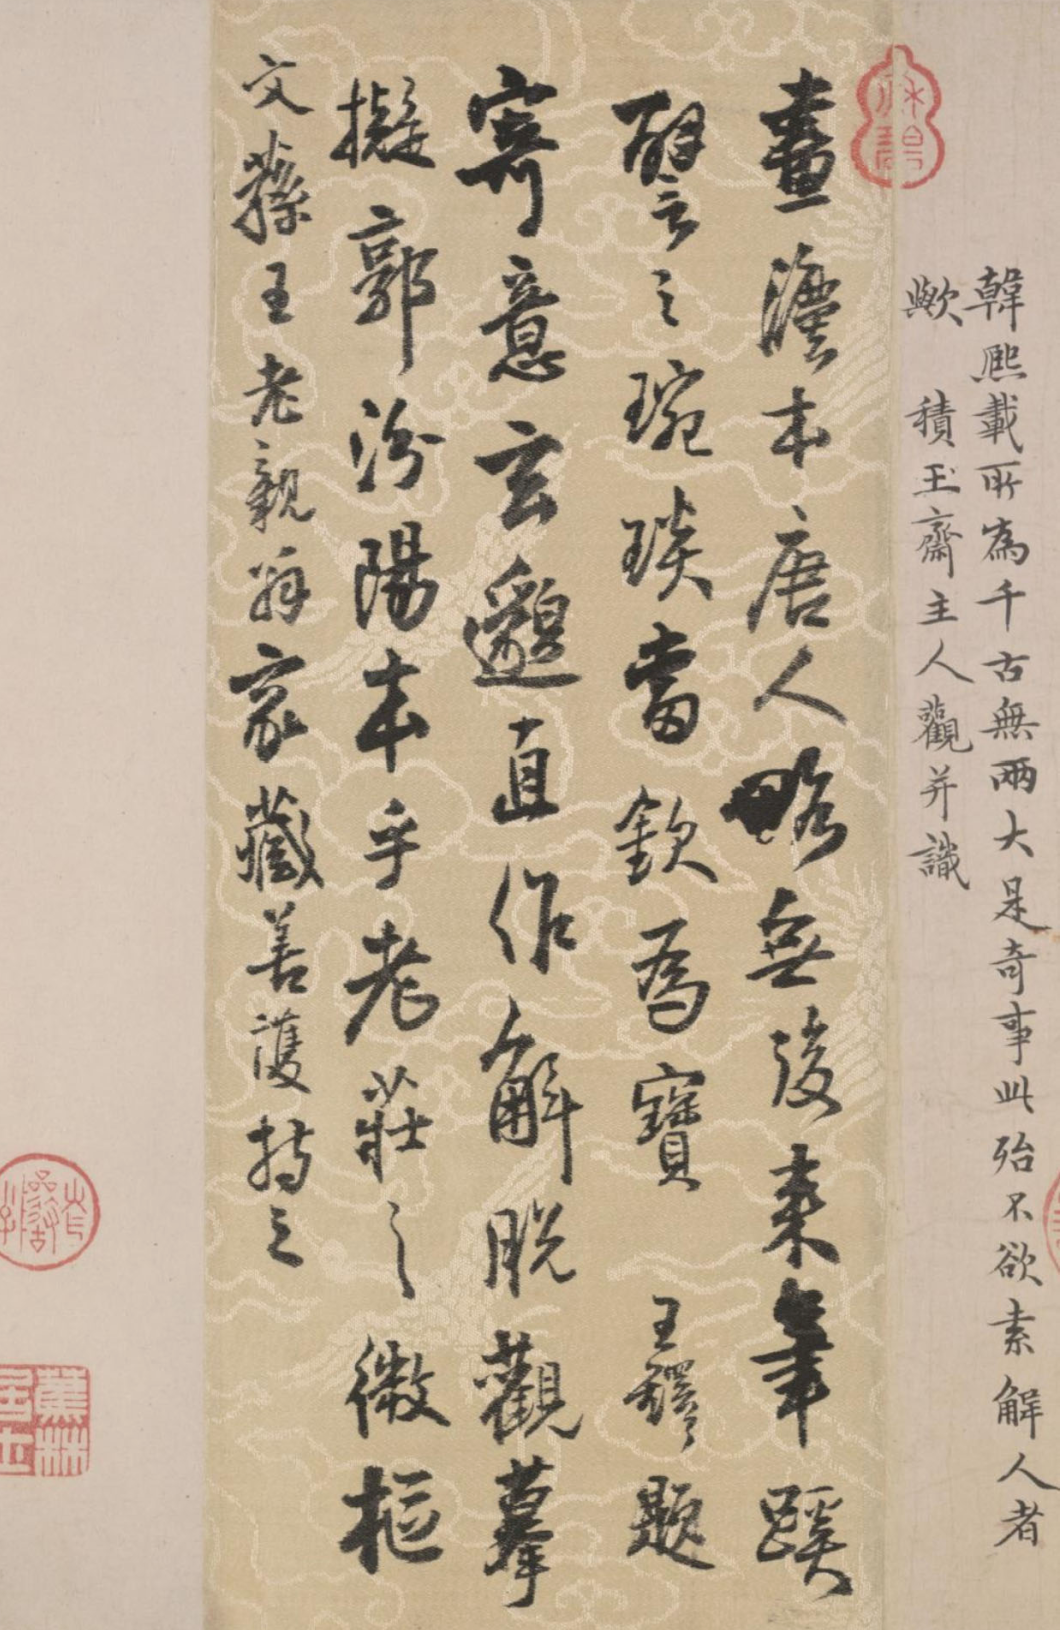 韓熙載所為千古無兩大是奇事此殆不欲索解人者
歟　積玉齋主人觀并識
畫法本唐人略無後來筆蹊
譬之琬琰當欽為寶　王鐸題
寄意玄邈直作解脫觀摹
擬郭汾陽本乎老莊之微樞
文蓀王老親翁家藏善護持之
蕉林